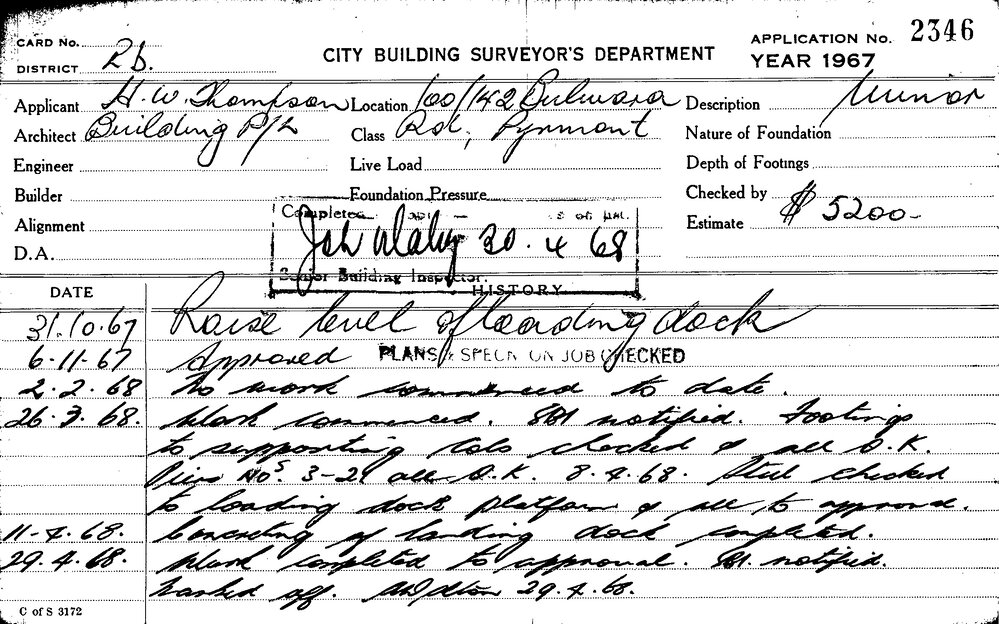 CARD No.
APPLICATION No. 2346
DISTRICT Rd.
CITY BUILDING SURVEYOR'S DEPARTMENT
YEAR 1967
Applicant H. W. Thompson Location 60/142 Bulwara Description Minor
Architect Building P/L Class Rd., Pyrmont Nature of Foundation
Engineer Live Load Depth of Footings
Builder Foundation Pressure Checked by
Alignment Completed Estimate $ 5200-
D.A. 30.4 68
Senior Building Inspector.
HISTORY
DATE
31.10.67 Raise level of loading dock
6-11-67 Approved PLANS & SPECN ON JOB CHECKED
2.2.68 No work commenced to date.
26.3.68. Work commenced. SBI notified. Footings
to supporting Cols checked & all O.K.
Piers Nos. 3-29 all O.K. 8.4.68. Steel checked
to loading dock platform & all to approval.
11-4.68. Concreting of landing dock completed.
29.4.68. Work completed to approval. SBI notified.
Marked off. 29.4.68.
C of S 3172